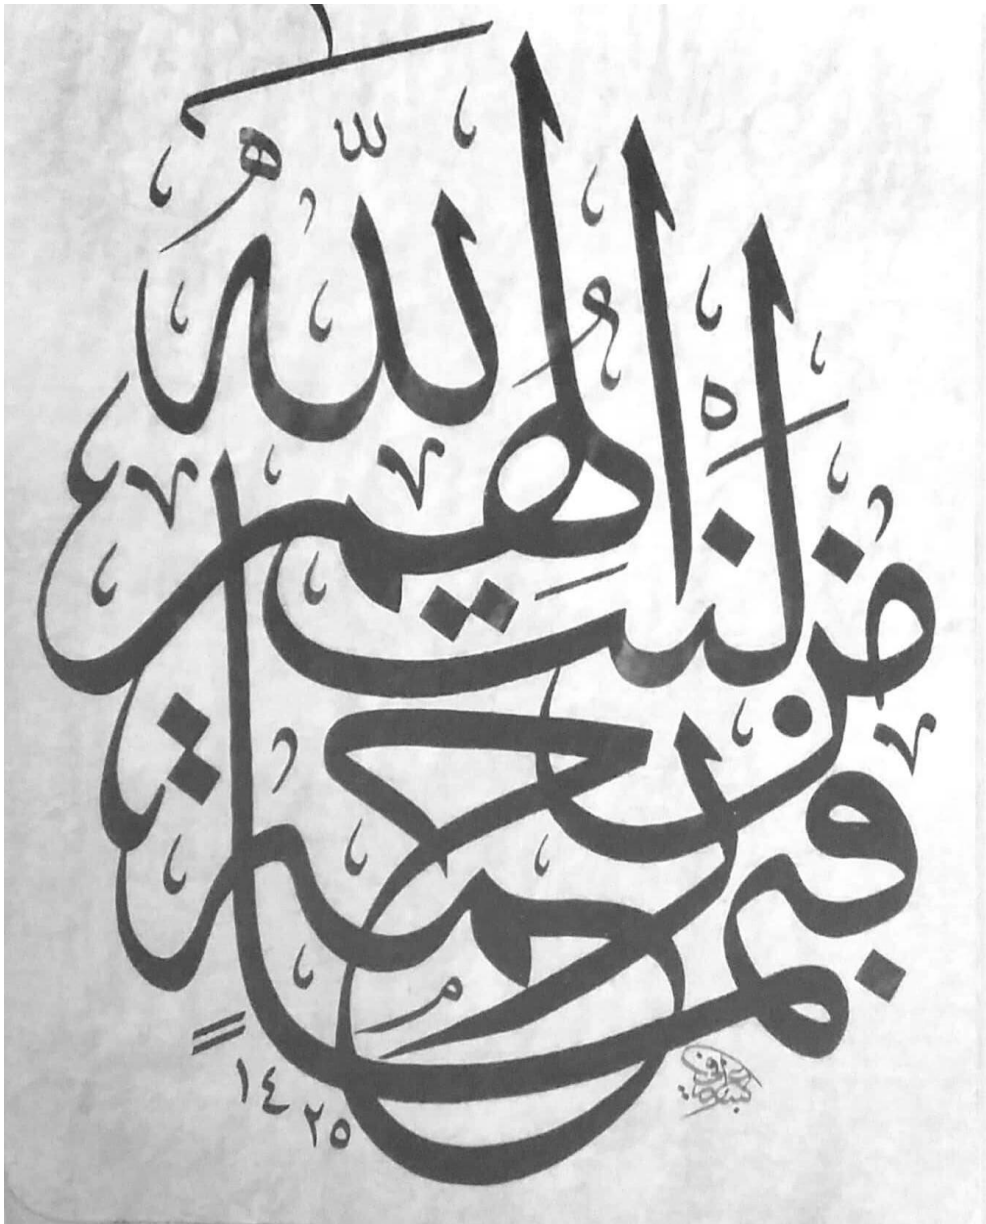 فَبِمَا رَحْمَةٍ مِّنَ اللَّهِ لِنتَ لَهُمْ
١٤٢٥